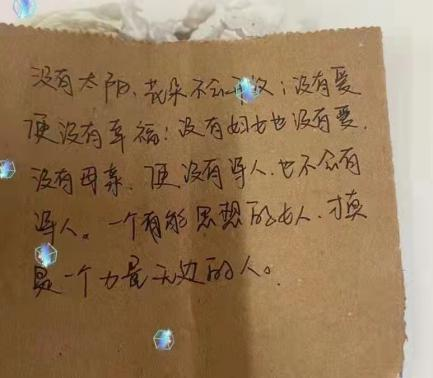 没有太阳、花朵不会开放；没有爱
便没有幸福；没有妇女也没有爱，
没有母亲，便没有诗人，也不会有
诗人。一个有能思想的女人，才真
是一个力量无边的人。